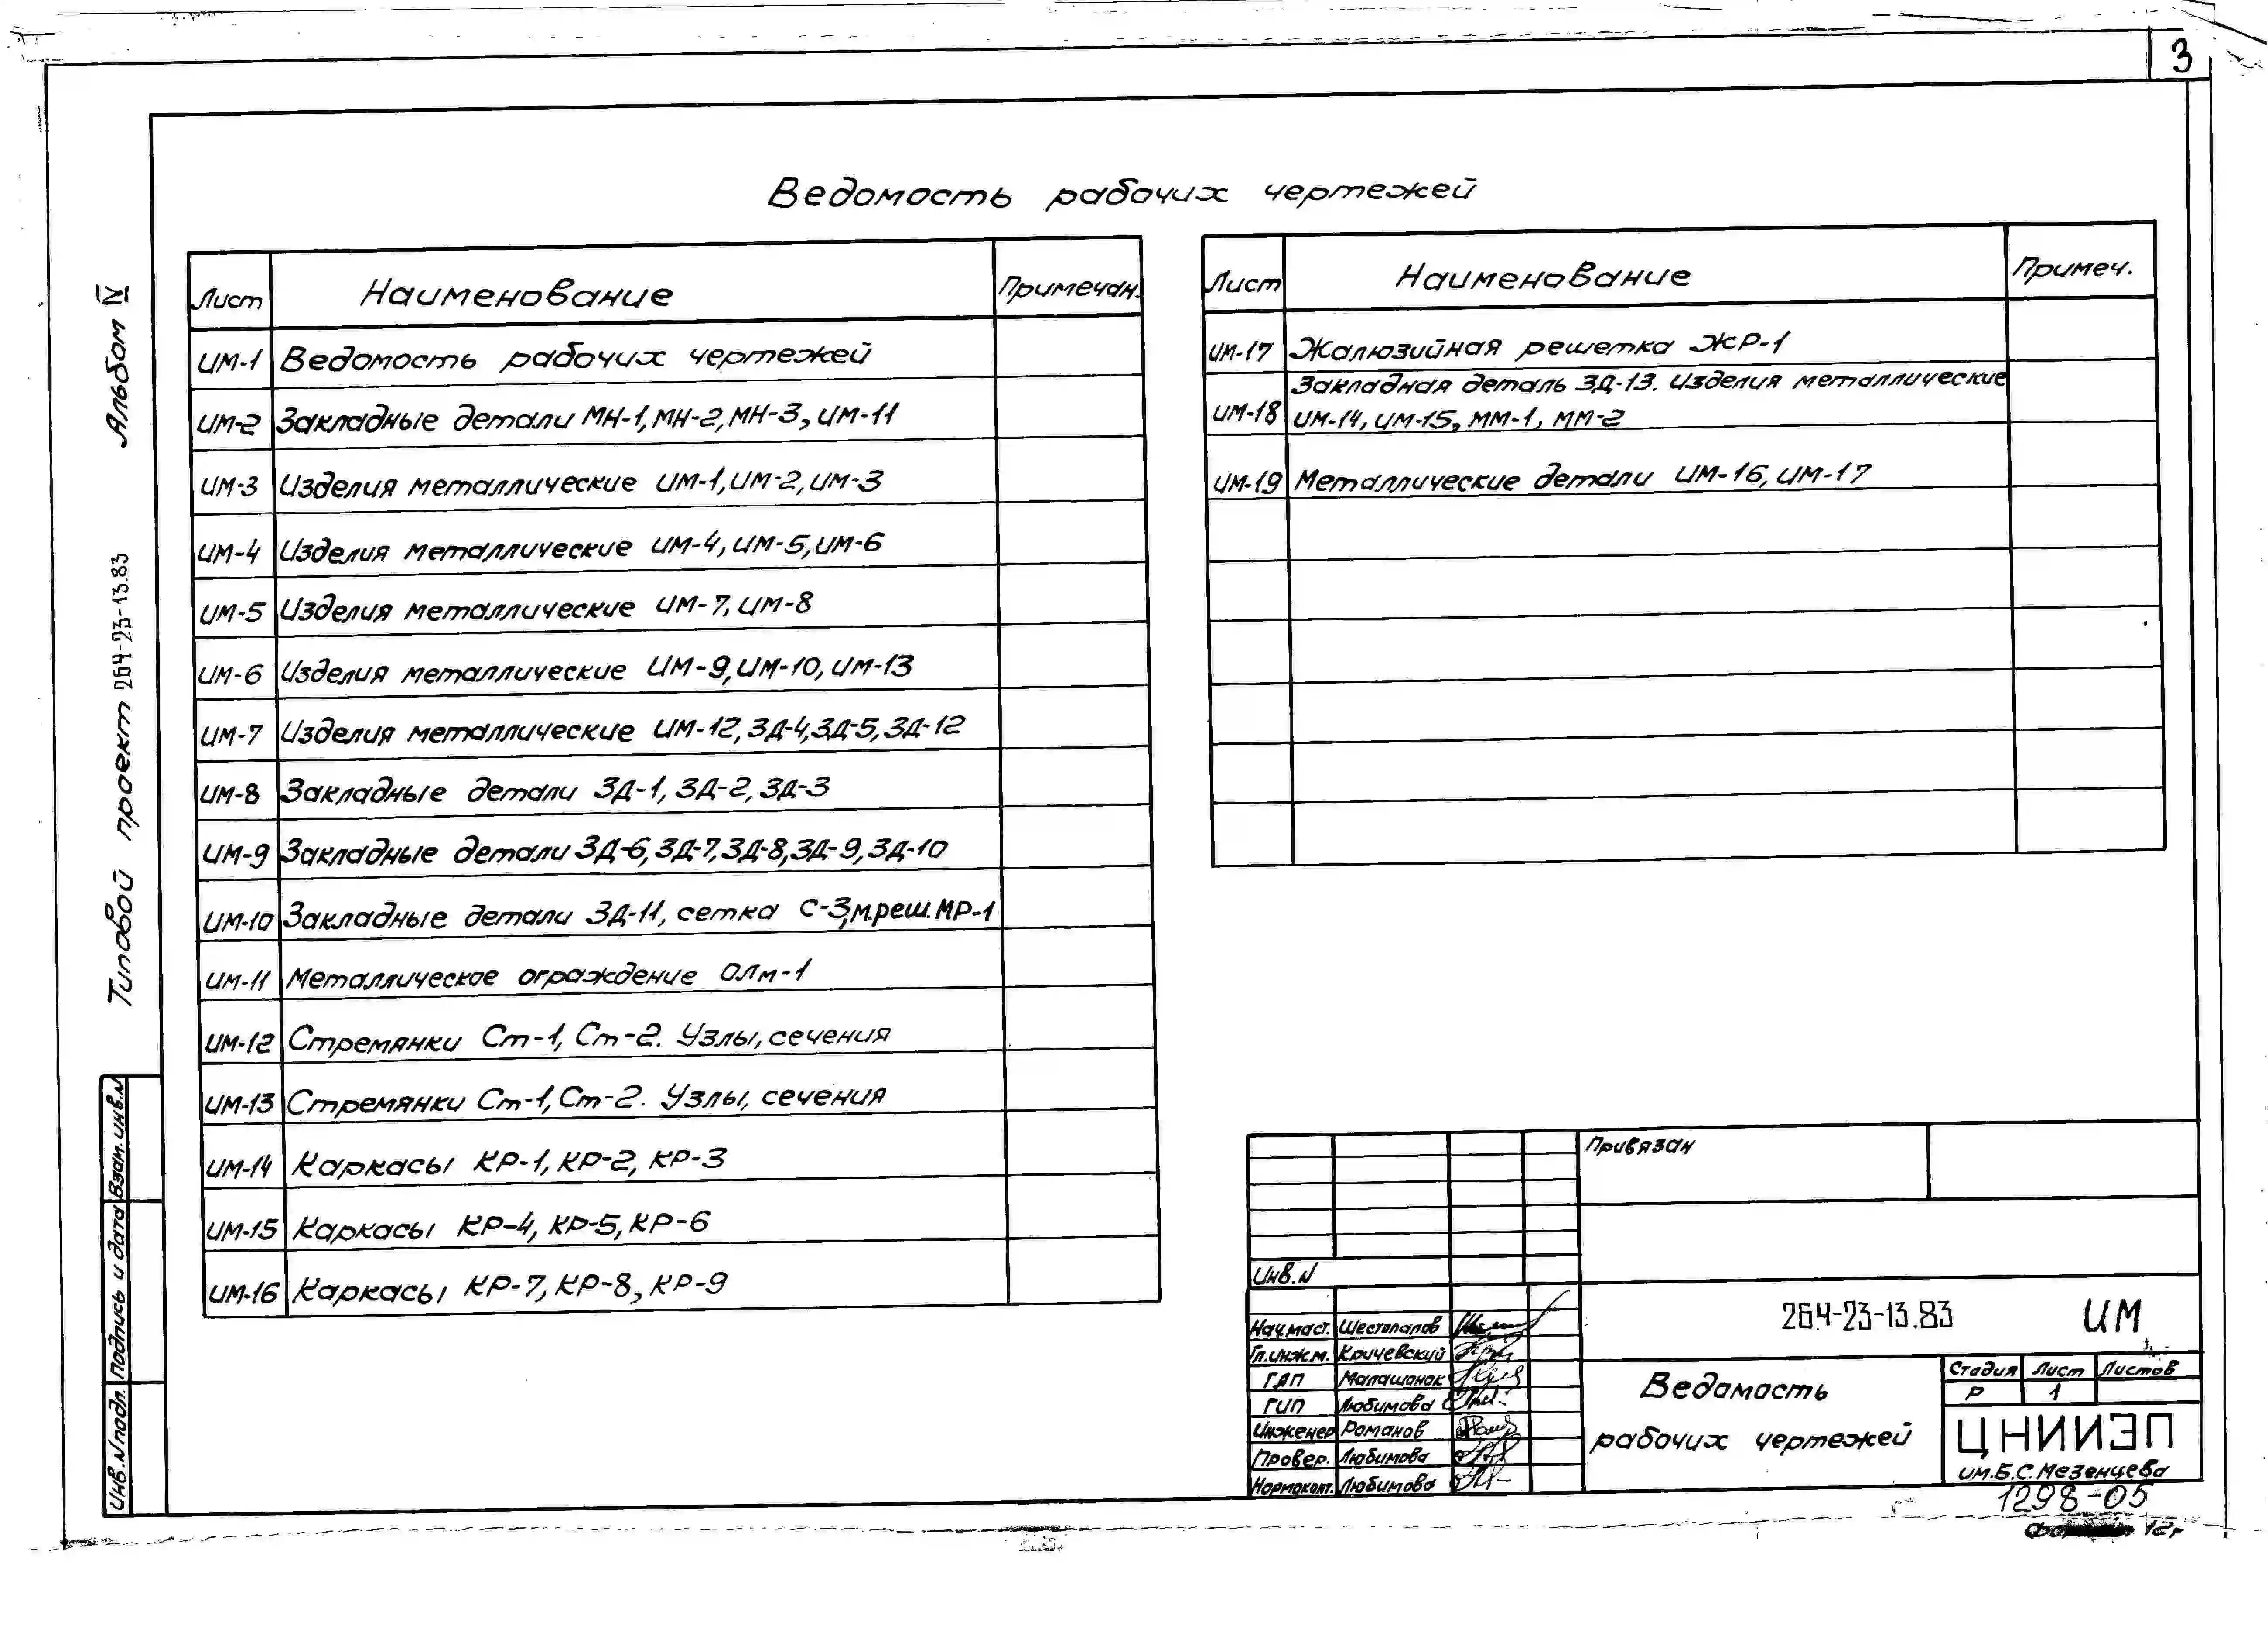 3
Ведомость рабочих чертежей
Лист Наименование Примечан.
ИМ-1 Ведомость рабочих чертежей
ИМ-2 Закладные детали МН-1, МН-2, МН-3, ИМ-11
ИМ-3 Изделия металлические ИМ-1, ИМ-2, ИМ-3
ИМ-4 Изделия металлические ИМ-4, ИМ-5, ИМ-6
ИМ-5 Изделия металлические ИМ-7, ИМ-8
ИМ-6 Изделия металлические ИМ-9, ИМ-10, ИМ-13
ИМ-7 Изделия металлические ИМ-12, ЗД-4, ЗД-5, ЗД-12
ИМ-8 Закладные детали ЗД-1, ЗД-2, ЗД-3
ИМ-9 Закладные детали ЗД-6, ЗД-7, ЗД-8, ЗД-9, ЗД-10
ИМ-10 Закладные детали ЗД-11, сетка С-3, м.реш. МР-1
ИМ-11 Металлическое ограждение ОЛм-1
ИМ-12 Стремянки Ст-1, Ст-2. Узлы, сечения
ИМ-13 Стремянки Ст-1, Ст-2. Узлы, сечения
ИМ-14 Каркасы КР-1, КР-2, КР-3
ИМ-15 Каркасы КР-4, КР-5, КР-6
ИМ-16 Каркасы КР-7, КР-8, КР-9
Лист Наименование Примеч.
ИМ-17 Жалюзийная решетка ЖР-1
Закладная деталь ЗД-13. Изделия металлические
ИМ-18 ИМ-14, ИМ-15, ММ-1, ММ-2
ИМ-19 Металлические детали ИМ-16, ИМ-17
Типовой проект 264-23-13.83 Альбом IV
Взам. инв. N
Подпись и дата
Инв. N подл.
Привязан
Инв. N
264-23-13.83 ИМ
Нач.маст. Шестопалов
Гл.инж.м. Кричевский
ГАП Малашонок
ГИП Любимова
Инженер Романов
Провер. Любимова
Нормоконт. Любимова
Ведомость
рабочих чертежей
Стадия Лист Листов
Р 1
ЦНИИЭП
им. Б.С. Мезенцева
1298-05
12г